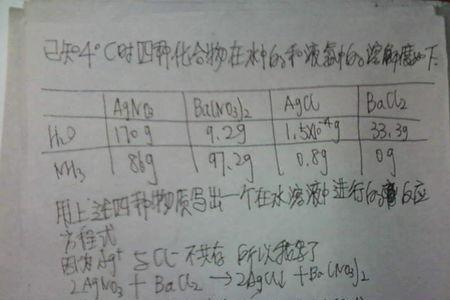 已知4°C时四种化合物在水中的和液氨中的溶解度如下
AgNO₃ Ba(NO₃)₂ AgCl BaCl₂
H₂O 170g 9.2g 1.5×10⁻⁴g 33.3g
NH₃ 86g 97.2g 0.8g 0g
用上述四种物质写出一个在水溶液中进行的反应
方程式
因为Ag⁺与Cl⁻不共存 所以我写了
2AgNO₃ + BaCl₂ → 2AgCl↓ + Ba(NO₃)₂